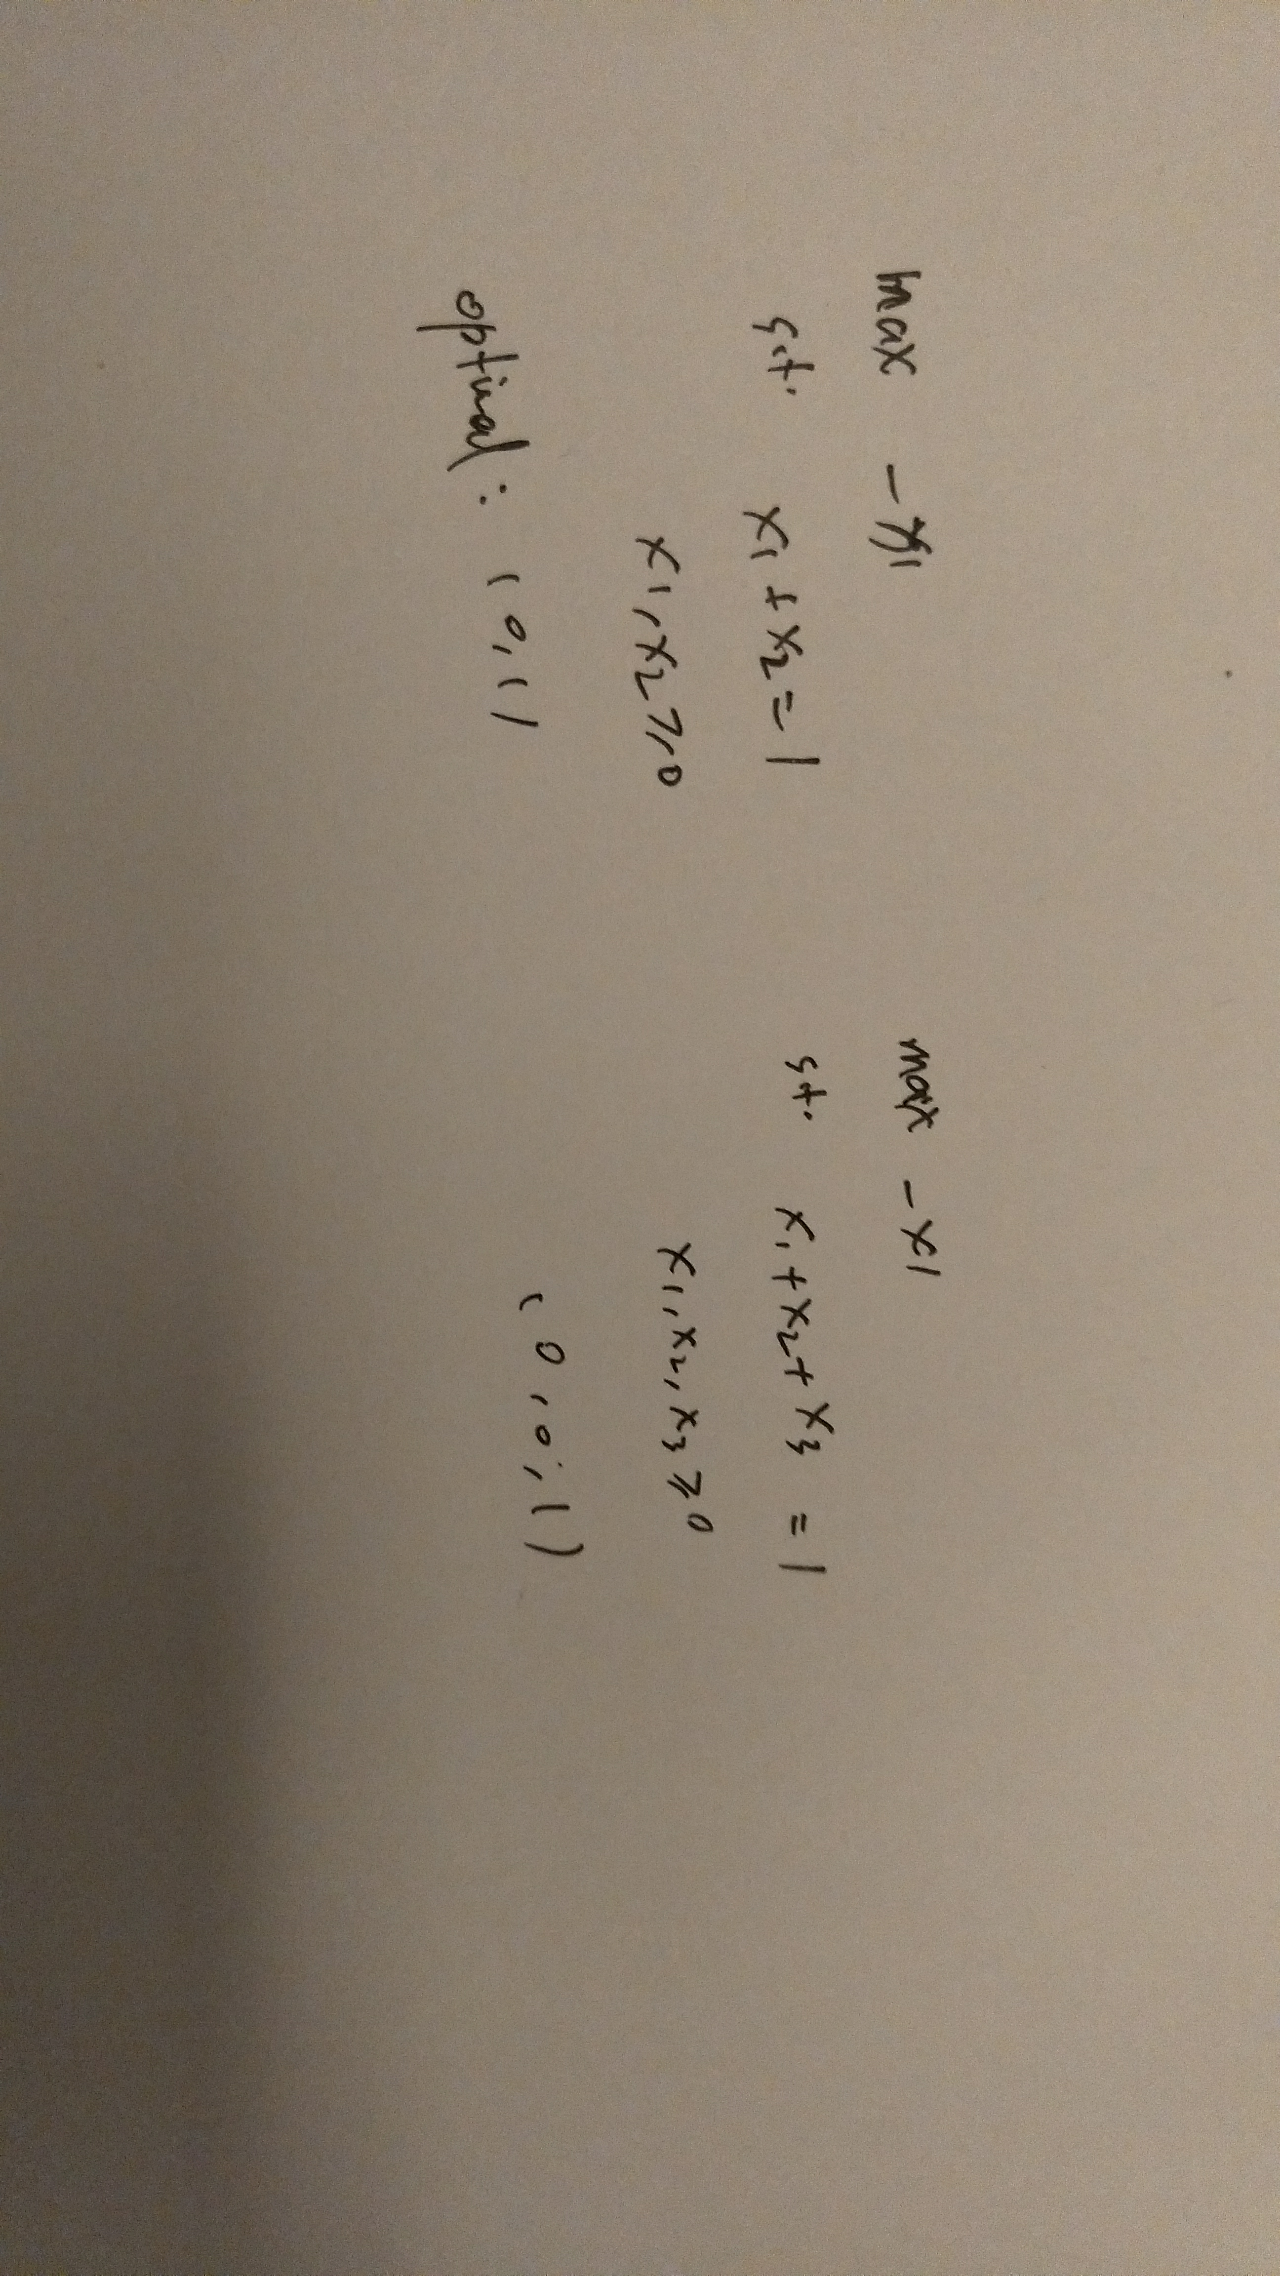 max -x1
s.t. x1+x2=1
x1,x2≥0
optimal: (0,1)
max -x1
s.t. x1+x2+x3 = 1
x1,x2,x3≥0
(0,0,1)